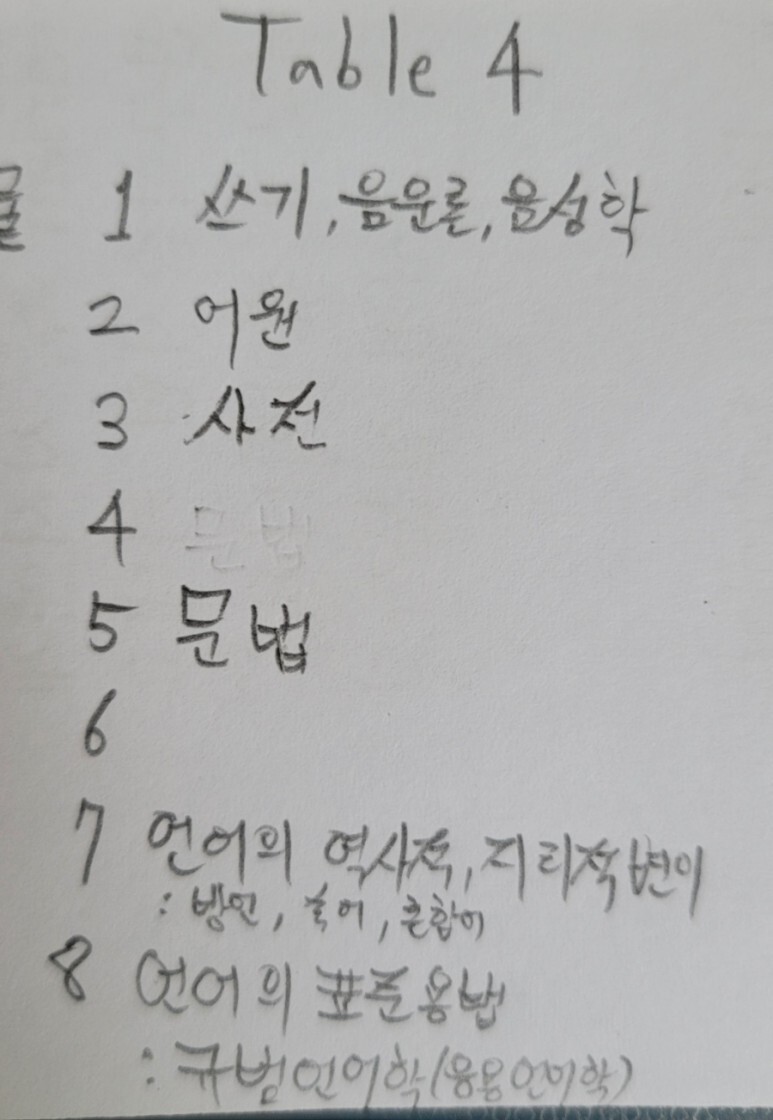 Table 4
1 쓰기, 음운론, 음성학
2 어원
3 사전
4 문법
5 문법
6
7 언어의 역사적, 지리적변이
: 방언, 속어, 혼합어
8 언어의 표준용법
: 규범언어학(응용언어학)